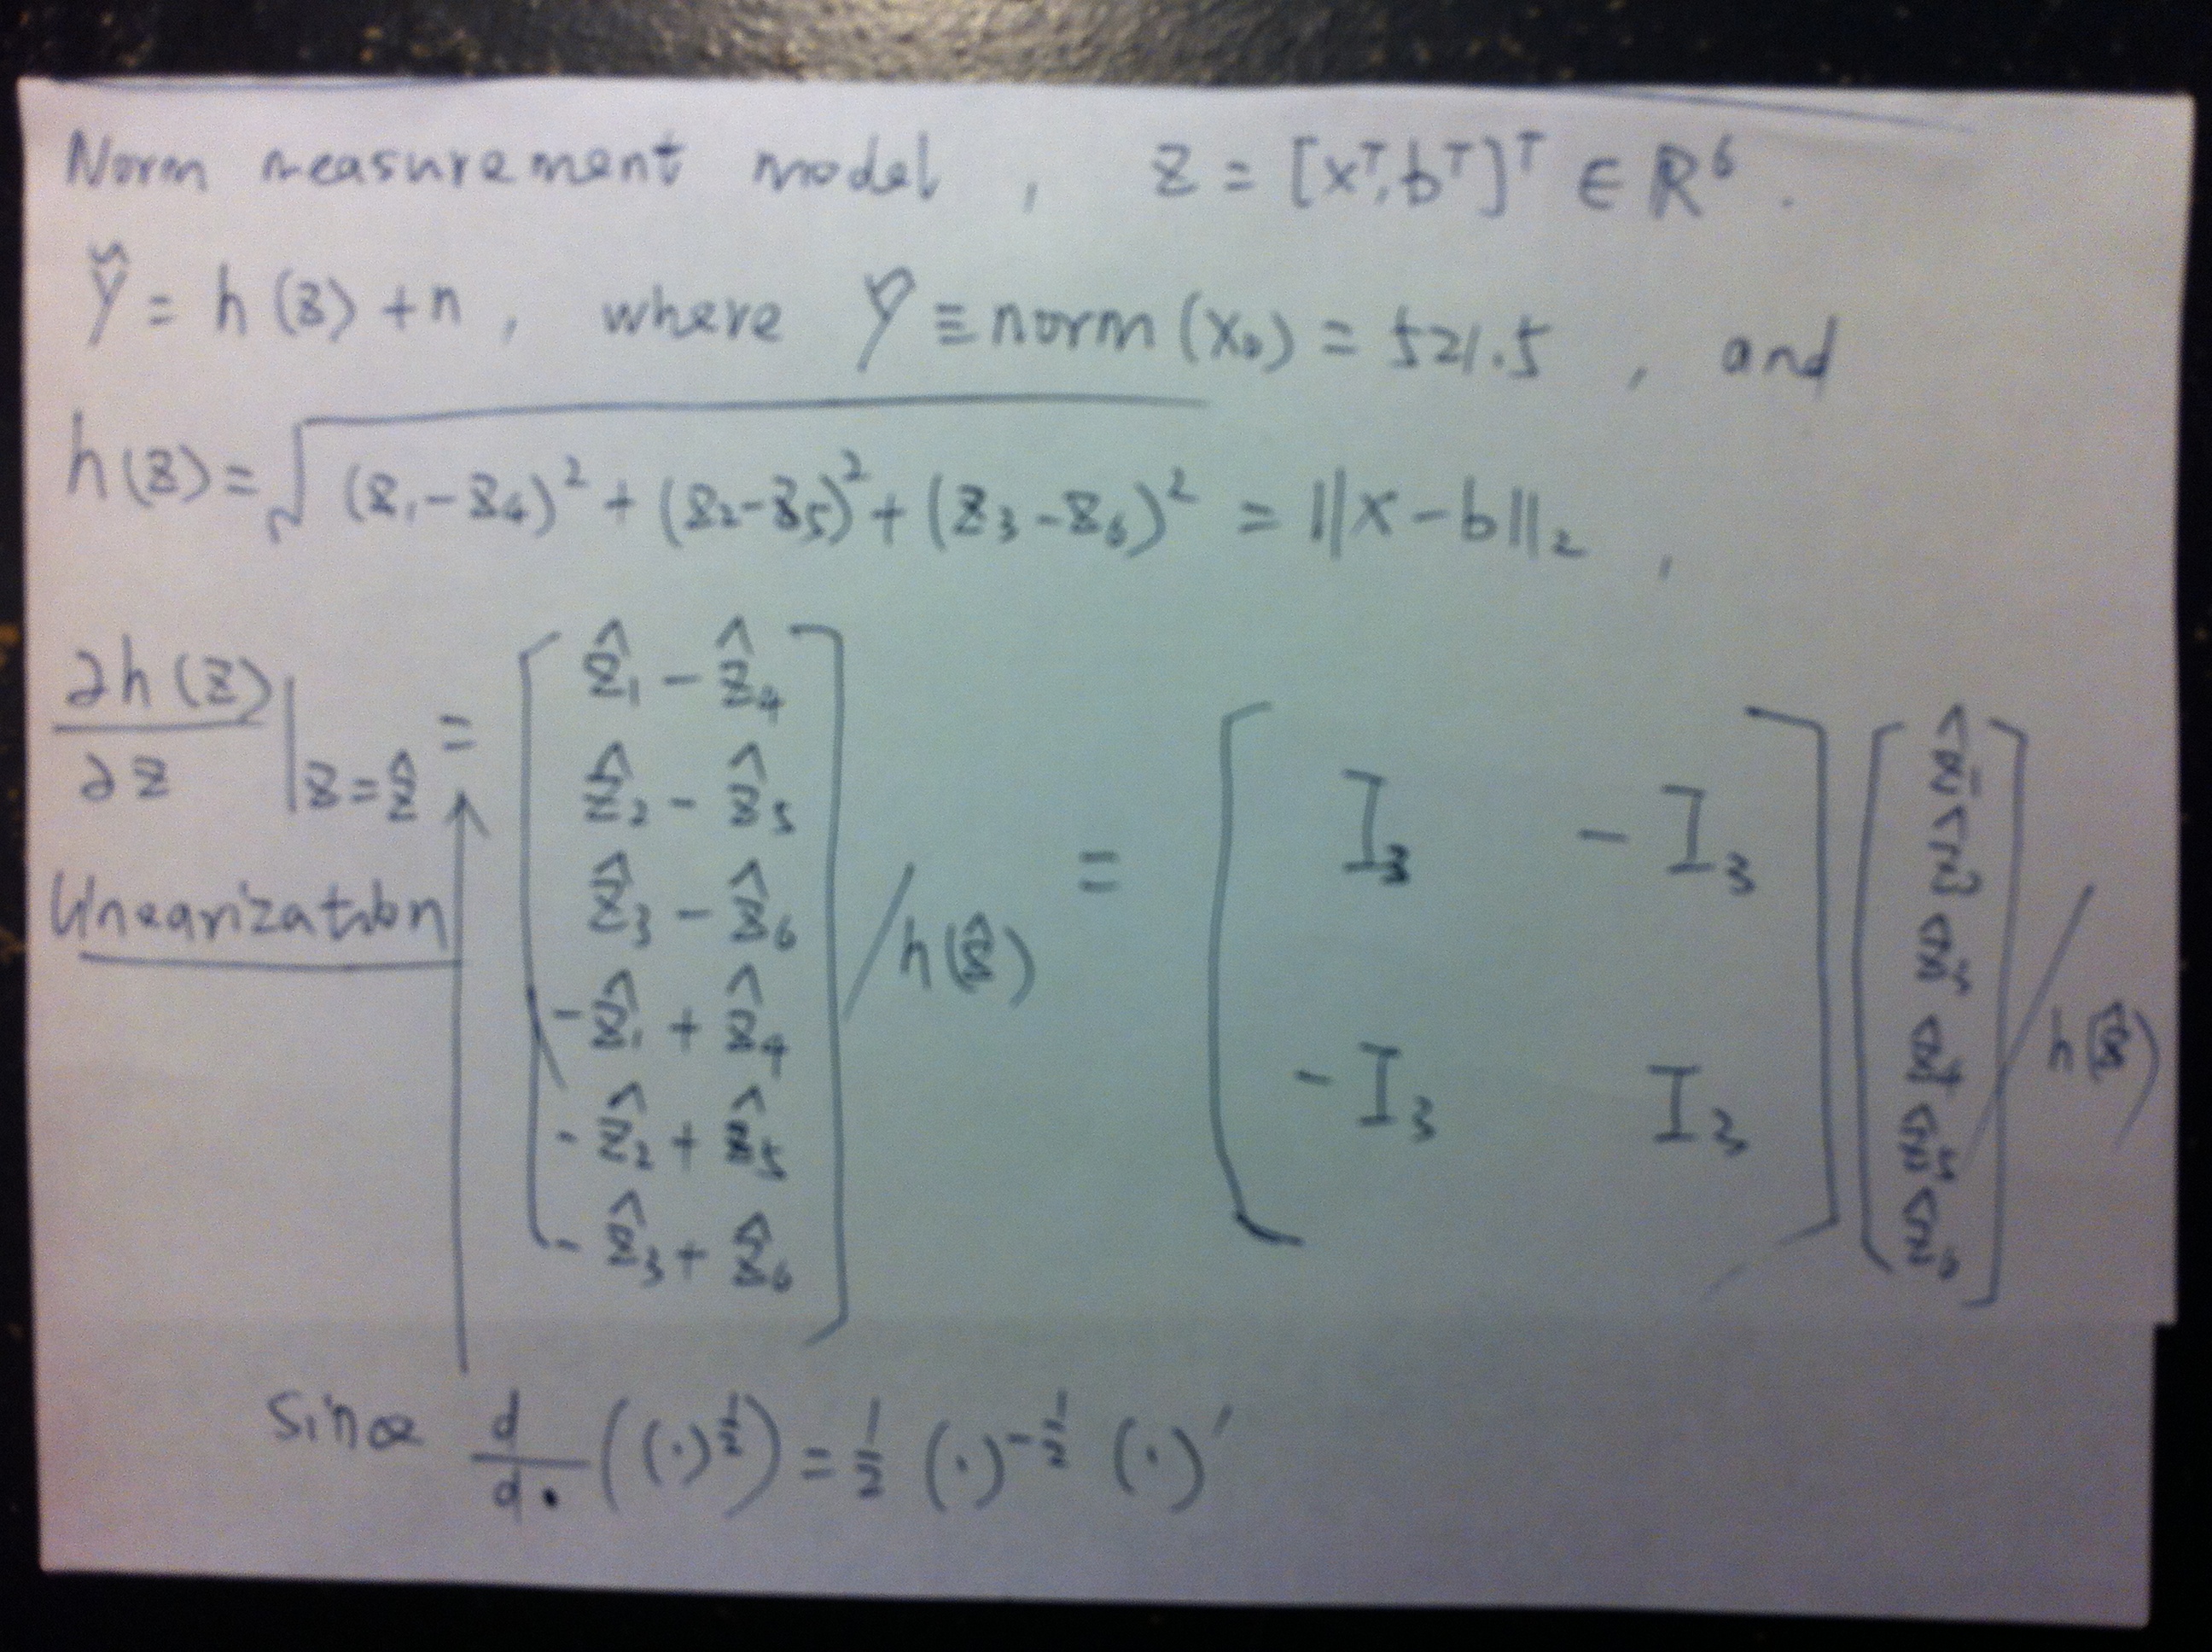 Norm measurement model , z = [xᵀ, bᵀ]ᵀ ∈ ℝ⁶ .
y̌ = h(z) + n , where y̌ ≡ norm(x₀) = 521.5 , and
h(z) = √((z₁ - z₄)² + (z₂ - z₅)² + (z₃ - z₆)²) = ||x - b||₂ ,
∂h(z)/∂z |z=ẑ = [ẑ₁ - ẑ₄
ẑ₂ - ẑ₅
ẑ₃ - ẑ₆
-ẑ₁ + ẑ₄
-ẑ₂ + ẑ₅
-ẑ₃ + ẑ₆] / h(ẑ) = [I₃ -I₃
-I₃ I₃] [ẑ₁ ẑ₂ ẑ₃ ẑ₄ ẑ₅ ẑ₆] / h(ẑ)
Linearization
Since d/d· ((·)^½) = ½ (·)^-½ (·)′